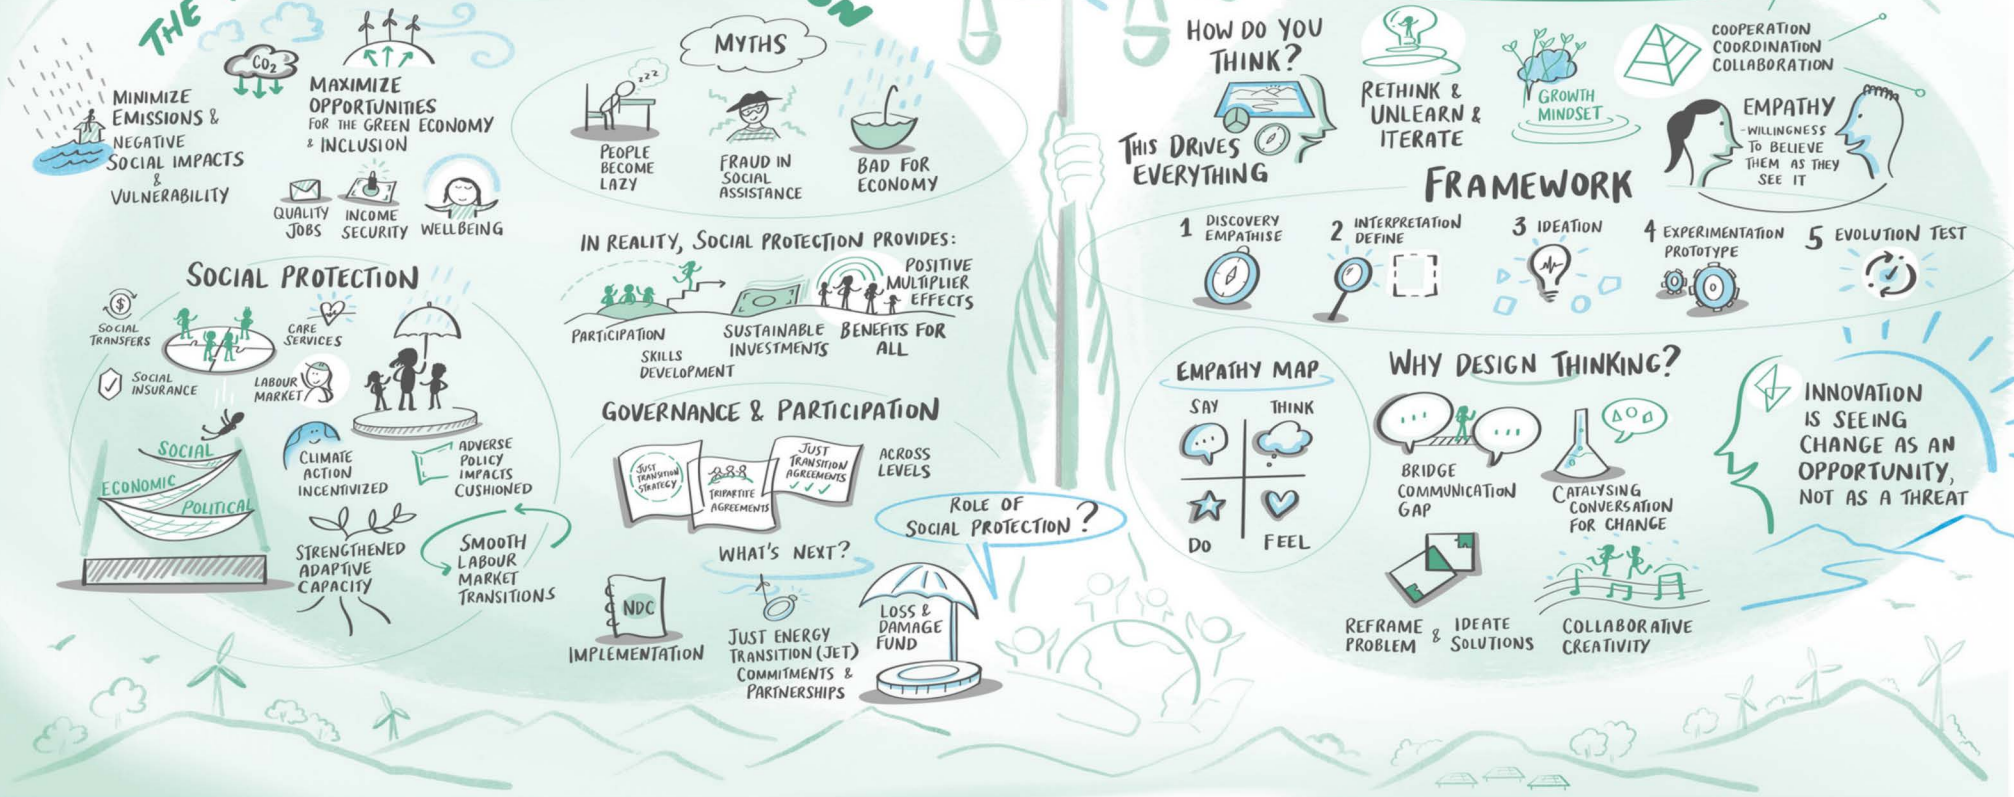 THE
ON
CO2
MINIMIZE
EMISSIONS &
NEGATIVE
SOCIAL IMPACTS
&
VULNERABILITY
MAXIMIZE
OPPORTUNITIES
FOR THE GREEN ECONOMY
& INCLUSION
QUALITY
JOBS
INCOME
SECURITY
WELLBEING
SOCIAL PROTECTION
$
SOCIAL
TRANSFERS
CARE
SERVICES
SOCIAL
INSURANCE
LABOUR
MARKET
SOCIAL
ECONOMIC
POLITICAL
CLIMATE
ACTION
INCENTIVIZED
ADVERSE
POLICY
IMPACTS
CUSHIONED
STRENGTHENED
ADAPTIVE
CAPACITY
SMOOTH
LABOUR
MARKET
TRANSITIONS
MYTHS
zzz
PEOPLE
BECOME
LAZY
FRAUD IN
SOCIAL
ASSISTANCE
BAD FOR
ECONOMY
IN REALITY, SOCIAL PROTECTION PROVIDES:
POSITIVE
MULTIPLIER
EFFECTS
PARTICIPATION
SKILLS
DEVELOPMENT
SUSTAINABLE
INVESTMENTS
BENEFITS FOR
ALL
GOVERNANCE & PARTICIPATION
JUST
TRANSITION
STRATEGY
TRIPARTITE
AGREEMENTS
JUST
TRANSITION
AGREEMENTS
ACROSS
LEVELS
WHAT'S NEXT?
NDC
IMPLEMENTATION
JUST ENERGY
TRANSITION (JET)
COMMITMENTS &
PARTNERSHIPS
LOSS &
DAMAGE
FUND
ROLE OF
SOCIAL PROTECTION?
HOW DO YOU
THINK?
THIS DRIVES
EVERYTHING
RETHINK &
UNLEARN &
ITERATE
GROWTH
MINDSET
COOPERATION
COORDINATION
COLLABORATION
EMPATHY
- WILLINGNESS
TO BELIEVE
THEM AS THEY
SEE IT
FRAMEWORK
1 DISCOVERY
EMPATHISE
2 INTERPRETATION
DEFINE
3 IDEATION
4 EXPERIMENTATION
PROTOTYPE
5 EVOLUTION TEST
EMPATHY MAP
SAY
THINK
DO
FEEL
WHY DESIGN THINKING?
BRIDGE
COMMUNICATION
GAP
CATALYSING
CONVERSATION
FOR CHANGE
REFRAME
PROBLEM
&
IDEATE
SOLUTIONS
COLLABORATIVE
CREATIVITY
INNOVATION
IS SEEING
CHANGE AS AN
OPPORTUNITY,
NOT AS A THREAT